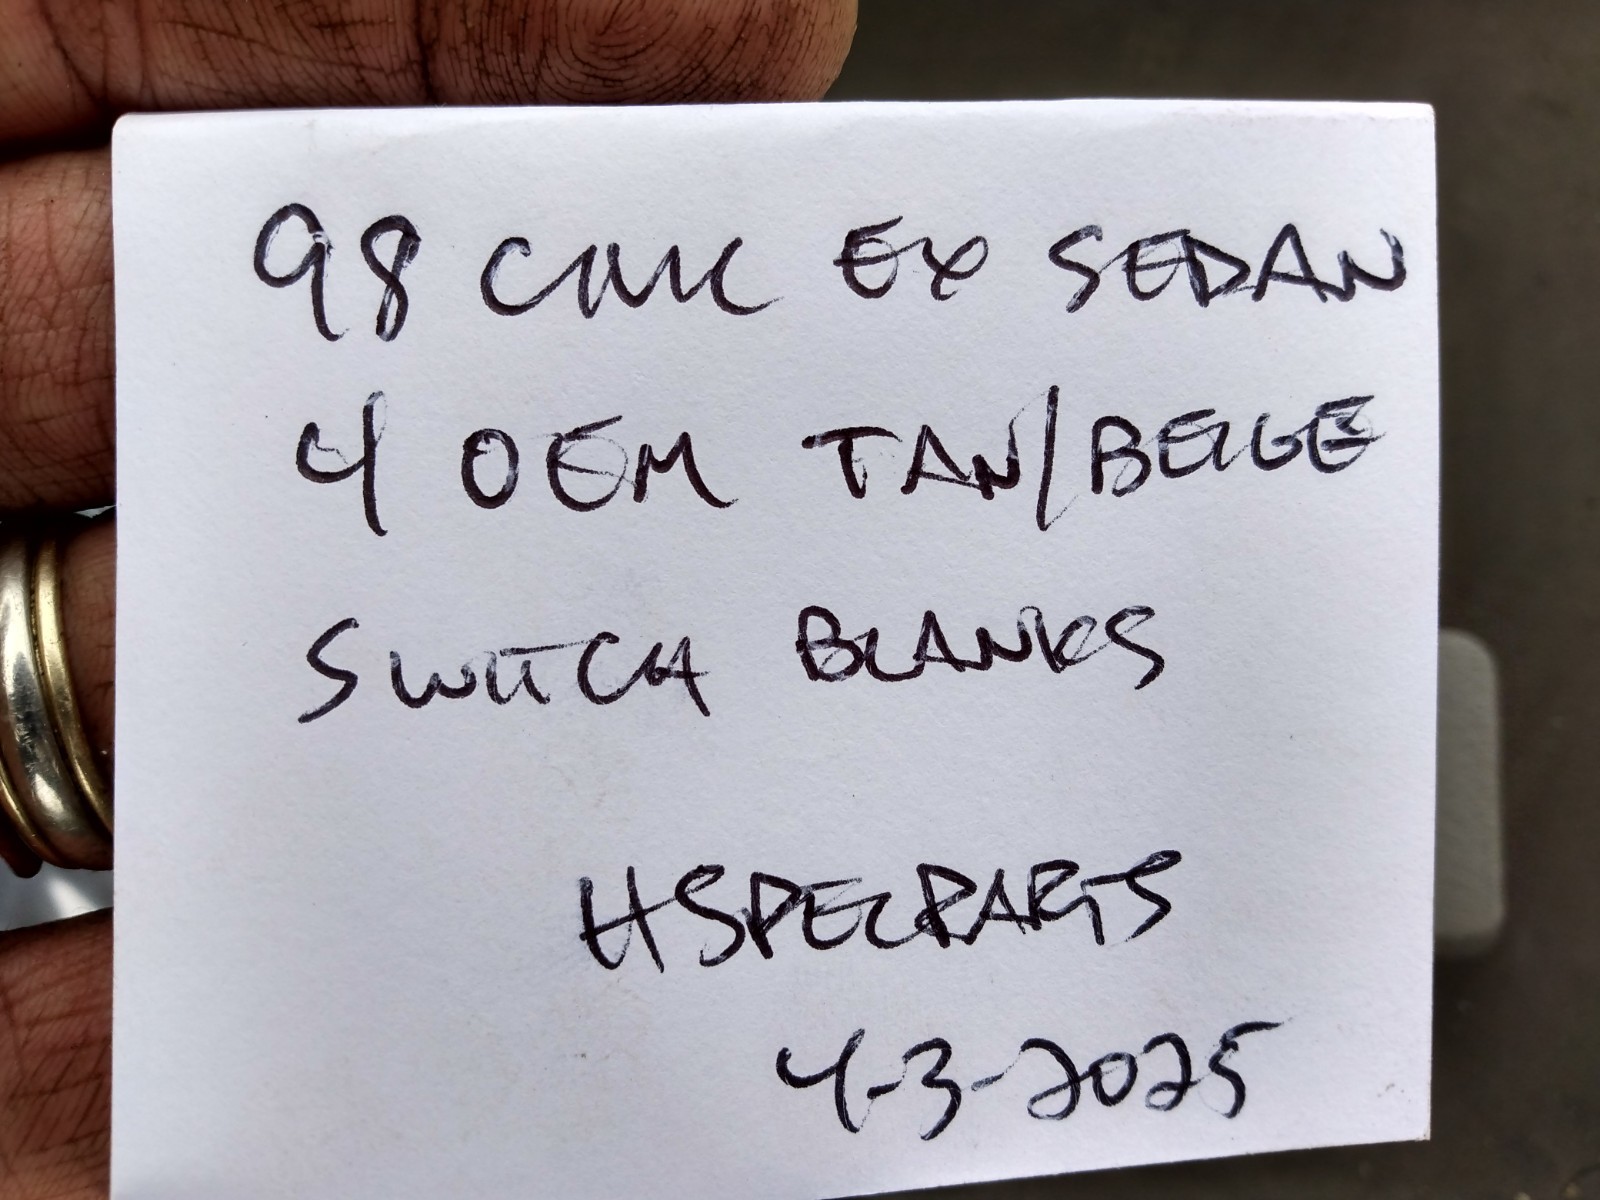 98 CIVIC EX SEDAN
4 OEM TAN/BEIGE
SWITCH BLANKS
HSPECPARTS
4-3-2025